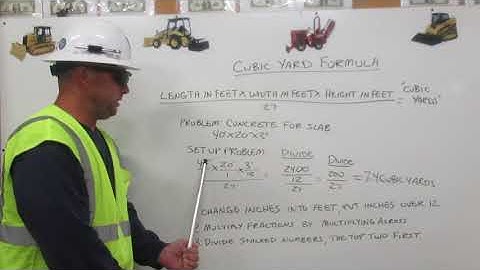 CUBIC YARD FORMULA
LENGTH IN FEET X WIDTH IN FEET X HEIGHT IN FEET = "CUBIC YARDS"
27
PROBLEM: CONCRETE FOR SLAB
40'X20'X3"
SET UP PROBLEM DIVIDE DIVIDE
X 20' X 3" = 2400 = 200 = 7.4 CUBIC YARDS
1 12 12
27 27 27
CHANGE INCHES INTO FEET, PUT INCHES OVER 12
MULTIPLY FRACTIONS BY MULTIPLYING ACROSS
3. DIVIDE STACKED NUMBERS, THE TOP TWO FIRST.